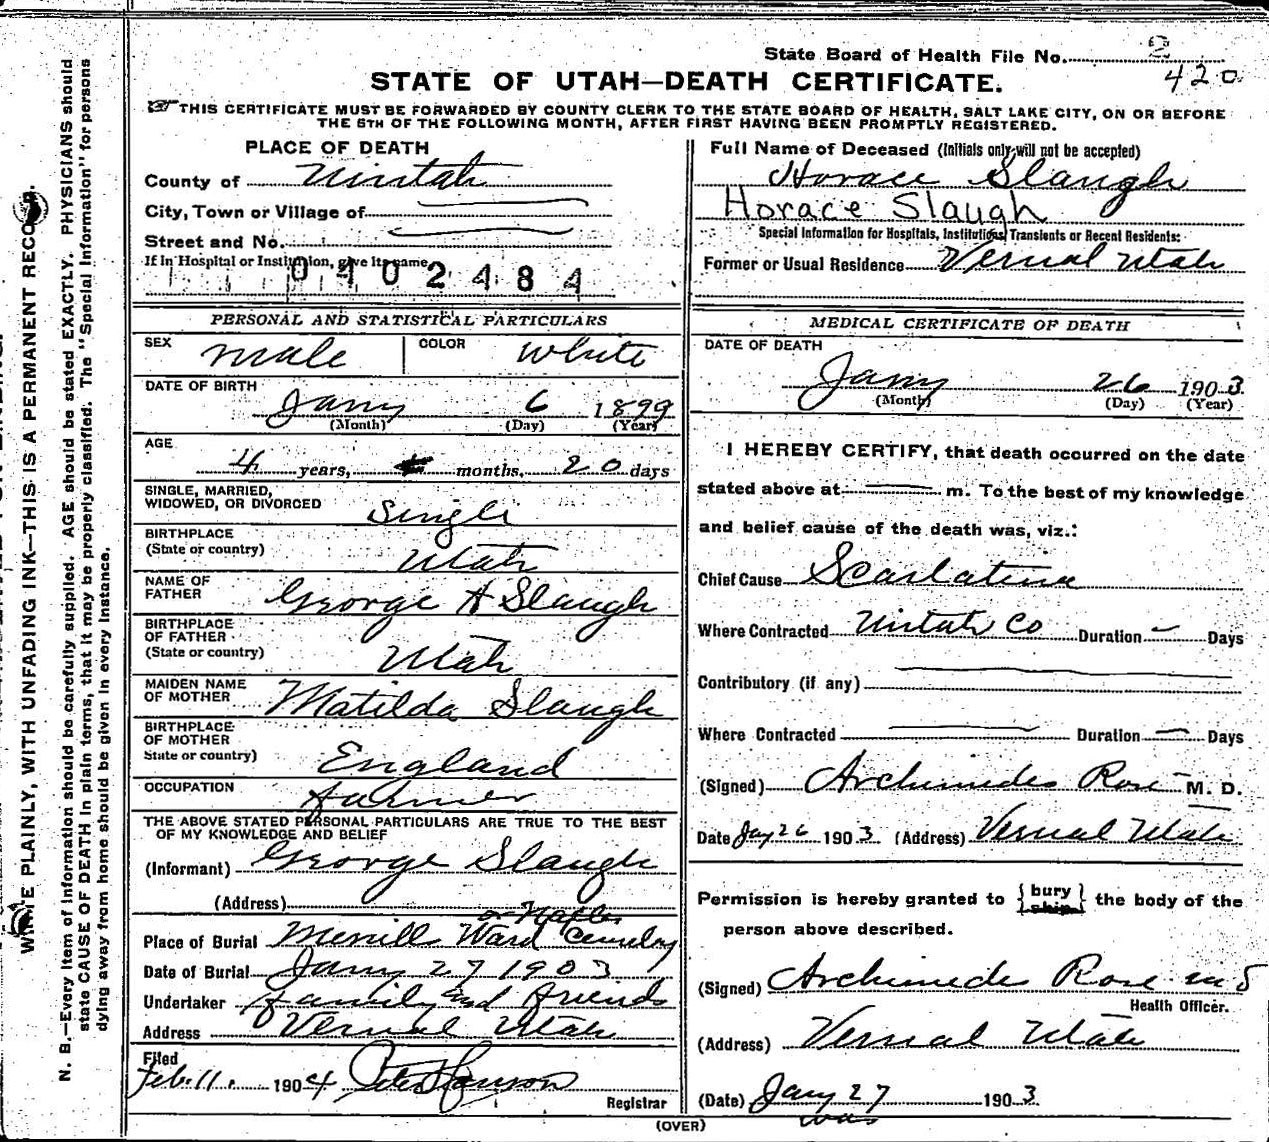 State Board of Health File No. 2
420
STATE OF UTAH—DEATH CERTIFICATE.
THIS CERTIFICATE MUST BE FORWARDED BY COUNTY CLERK TO THE STATE BOARD OF HEALTH, SALT LAKE CITY, ON OR BEFORE
THE 5TH OF THE FOLLOWING MONTH, AFTER FIRST HAVING BEEN PROMPTLY REGISTERED.
PLACE OF DEATH
County of Uintah
City, Town or Village of
Street and No.
If in Hospital or Institution, give its name
0402484
PERSONAL AND STATISTICAL PARTICULARS
SEX male COLOR White
DATE OF BIRTH
Jany 6 1899
(Month) (Day) (Year)
AGE
4 years, months, 20 days
SINGLE, MARRIED,
WIDOWED, OR DIVORCED Single
BIRTHPLACE
(State or country) Utah
NAME OF
FATHER George A Slaugh
BIRTHPLACE
OF FATHER
(State or country) Utah
MAIDEN NAME
OF MOTHER Matilda Slaugh
BIRTHPLACE
OF MOTHER
State or country) England
OCCUPATION Farmer
THE ABOVE STATED PERSONAL PARTICULARS ARE TRUE TO THE BEST
OF MY KNOWLEDGE AND BELIEF
(Informant) George Slaugh
(Address)
or Naples
Place of Burial Merrill Ward Cemetery
Date of Burial Jany 27 1903
Undertaker family and friends
Address Vernal Utah
Filed
Feb. 11. 1904
Registrar
Full Name of Deceased (Initials only will not be accepted)
Horace Slaugh
Horace Slaugh
Special Information for Hospitals, Institutions, Transients or Recent Residents:
Former or Usual Residence Vernal Utah
MEDICAL CERTIFICATE OF DEATH
DATE OF DEATH
Jany 26 1903
(Month) (Day) (Year)
I HEREBY CERTIFY, that death occurred on the date
stated above at m. To the best of my knowledge
and belief cause of the death was, viz.:
Chief Cause Scarlatina
Where Contracted Uintah Co Duration — Days
Contributory (if any)
Where Contracted Duration — Days
(Signed) Archimedes Rose M. D.
Date Jay 26 1903 (Address) Vernal Utah
Permission is hereby granted to { bury ship } the body of the
person above described.
(Signed) Archimedes Rose
Health Officer.
(Address) Vernal Utah
(Date) Jany 27 1903.
was
(OVER)
WRITE PLAINLY, WITH UNFADING INK—THIS IS A PERMANENT RECORD.
N. B.—Every item of information should be carefully supplied. AGE should be stated EXACTLY. PHYSICIANS should
state CAUSE OF DEATH in plain terms, that it may be properly classified. The "Special Information" for persons
dying away from home should be given in every instance.